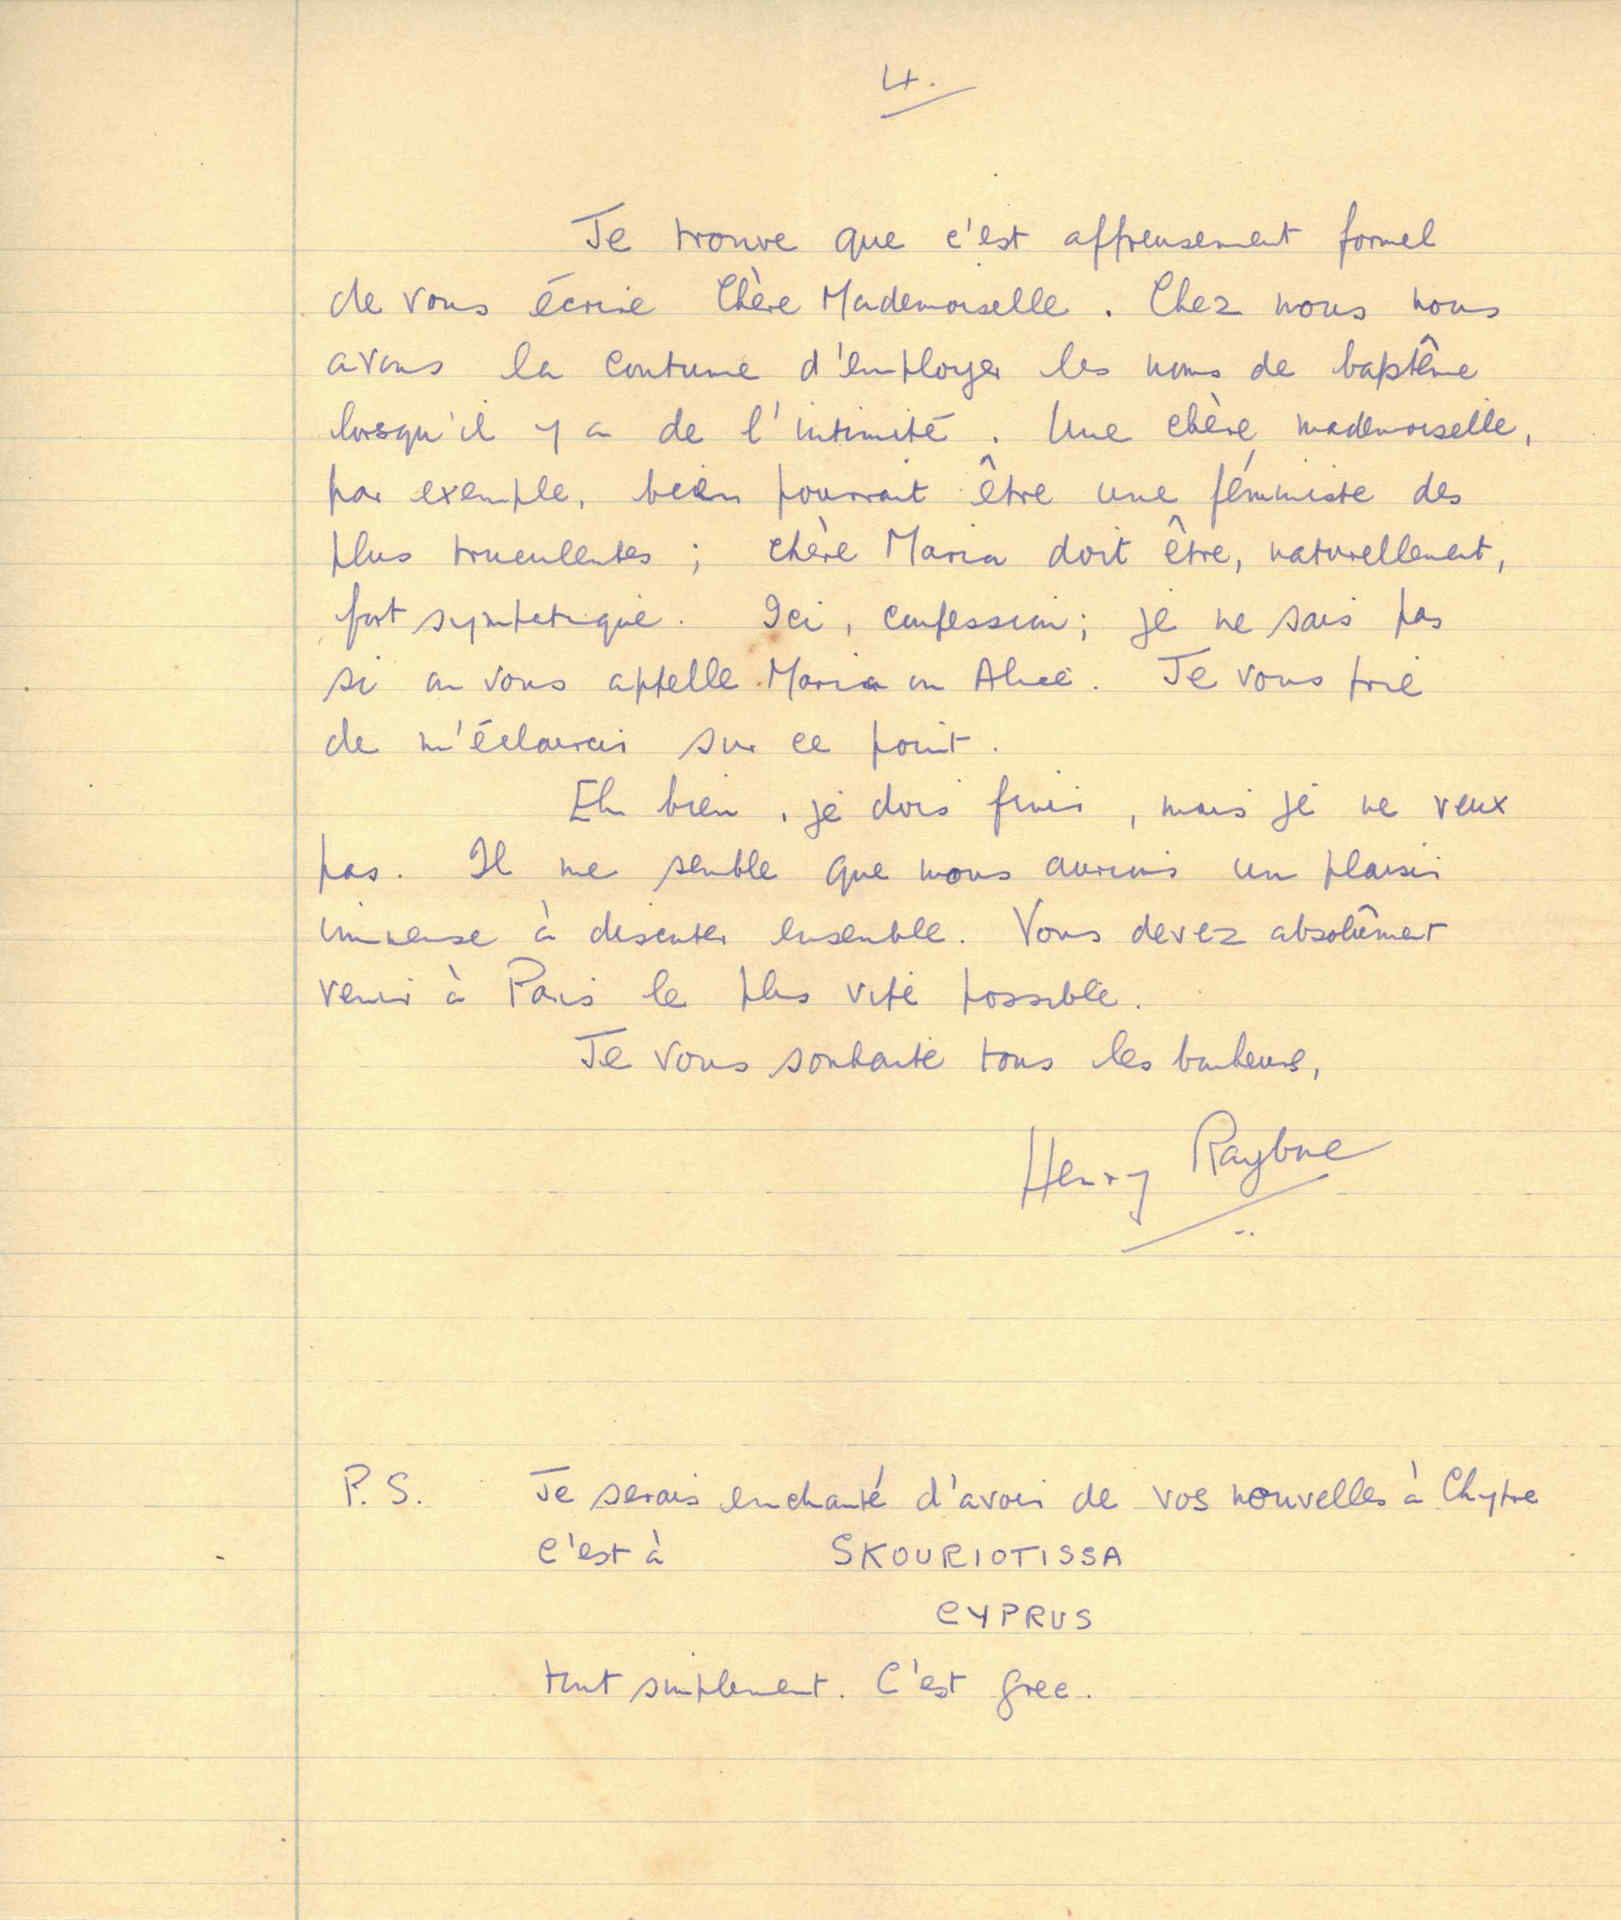 4.
Je trouve que c'est affreusement formel
de vous écrire Chère Mademoiselle. Chez nous nous
avons la coutume d'employer les noms de baptême
lorsqu'il y a de l'intimité. Une chère mademoiselle,
par exemple, bien pourrait être une féministe des
plus truculentes ; chère Maria doit être, naturellement,
fort sympatique. Ici, confession; je ne sais pas
si on vous appelle Maria ou Alice. Je vous prie
de m'éclaircir sur ce point.
Eh bien, je dois finir, mais je ne veux
pas. Il me semble que nous aurions un plaisir
immense à discuter ensemble. Vous devez absolûment
venir à Paris le plus vite possible.
Je vous souhaite tous les bonheurs,
Henry
P.S. Je serais enchanté d'avoir de vos nouvelles à Chypre
C'est à SKOURIOTISSA
CYPRUS
tout simplement. C'est grec.